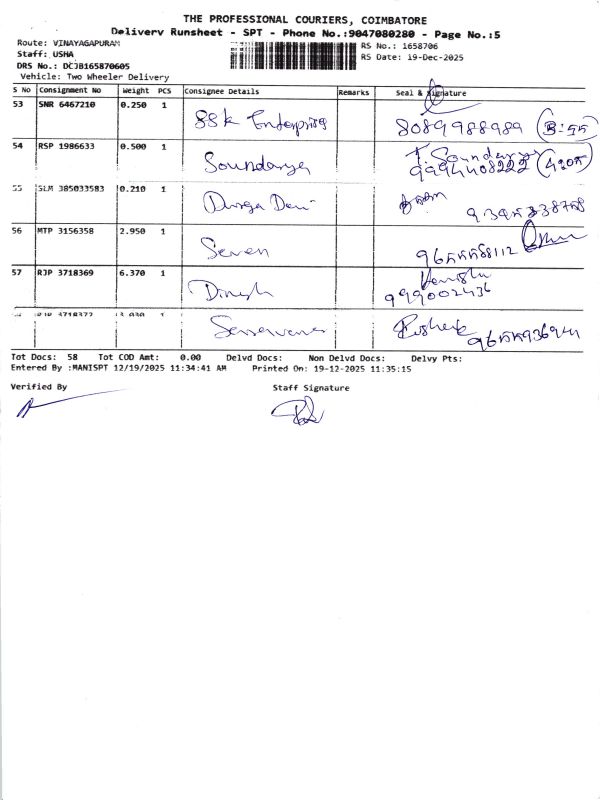 THE PROFESSIONAL COURIERS, COIMBATORE
Delivery Runsheet - SPT - Phone No.:9047080280 - Page No.:5
Route: VINAYAGAPURAM
Staff: USHA
DRS No.: DCJB165870605
Vehicle: Two Wheeler Delivery
RS No.: 1658706
RS Date: 19-Dec-2025
S No Consignment No Weight PCS Consignee Details Remarks Seal & Signature
53 SNR 6467210 0.250 1
SSK Enterprises 8089988989 (3:55
54 RSP 1986633 0.500 1
Soundarya T. Soundarya
9994408222 (4:05)
55 SLM 385033583 0.210 1
Durga Devi
56 MTP 3156358 2.950 1
Seven 9655568112
57 RJP 3718369 6.370 1
Dinesh
999002436
58 RJP 3718372 3.030 1
Tot Docs: 58 Tot COD Amt: 0.00 Delvd Docs: Non Delvd Docs: Delvy Pts:
Entered By :MANISPT 12/19/2025 11:34:41 AM Printed On: 19-12-2025 11:35:15
Verified By Staff Signature